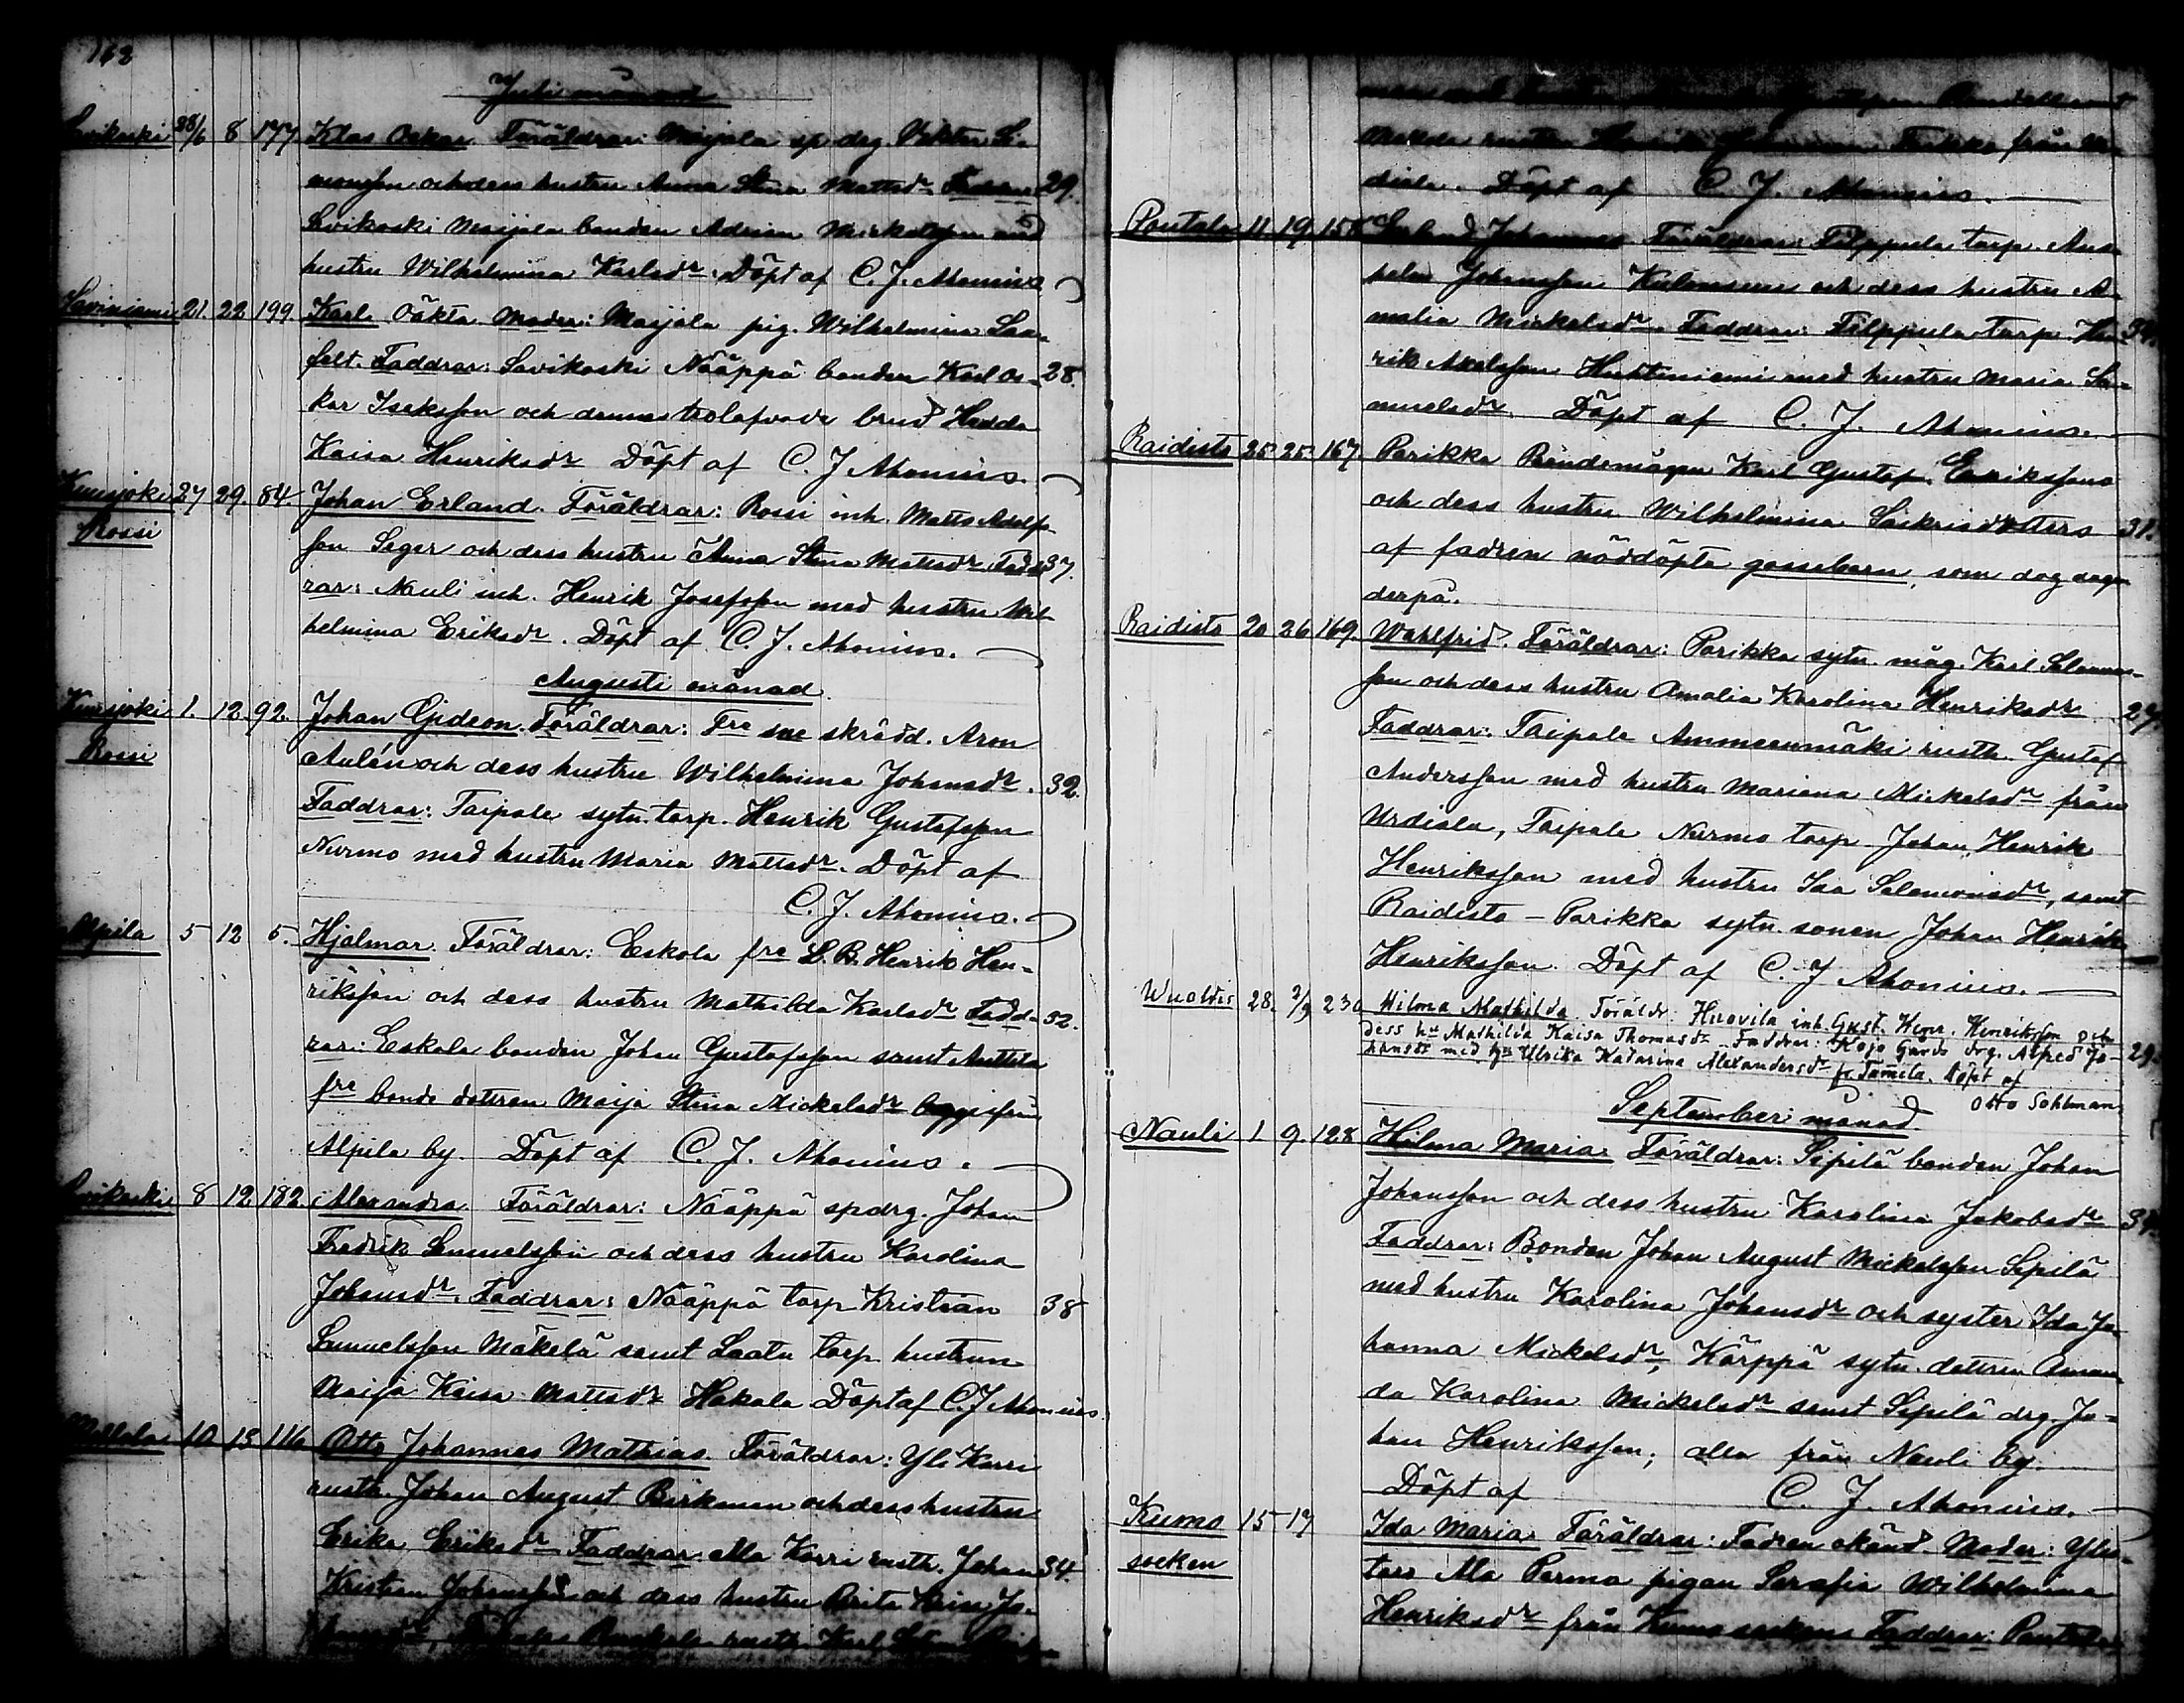 162
Juli månad
Savikoski 28/6 8 177. Klas Oskar. Föräldrar: Maijala sp drg. Viktor Si-
monsson och dess hustru Anna Stina Mattsdr Faddrar 29.
Savikoski Maijala bonden Adrian Mickelsson med
hustru Wilhelmina Karlsdr. Döpt af C. J. Ahonius
Saviniemi 21 22 199 Karl Oäkta. Moder: Maijala pig. Wilhelmina
felt. Faddrar: Savikoski Nääppä bonden Karl Os- 28.
kar Isaksson och dennes trolofvade brud Hedda
Kaisa Henriksdr Döpt af C. J. Ahonius.
Kuusjoki 27 29. 84. Johan Erland. Föräldrar: Rossi inh. Matts Adolfs-
Rossi
son Seger och dess hustru Anna Stina Mattsdr. Fadd- 37.
rar: Nauli inh. Henrik Josefsson med hustru Wil-
helmina Eriksdr. Döpt af C. J. Ahonius.
Augusti månad.
Kuusjoki 1. 12. 92. Johan Gideon. Föräldrar: Fre skrädd. Aron
Rossi
Aulén och dess hustru Wilhelmina Johansdr. 32.
Faddrar: Taipale sytn. torp. Henrik Gustafsson
Nurmo med hustru Maria Mattsdr. Döpt af
C. J. Ahonius.
Alpila 5 12 5. Hjalmar. Föräldrar: Eskola fre L. B. Henrik Hen-
riksson och dess hustru Mathilda Karlsdr Fadd- 32.
rar: Eskola bonden Johan Gustafsson samt Anttila
fre bonde dottren Maija Stina Mickelsdr begge från
Alpila by. Döpt af C. J. Ahonius.
Savikoski 8 12 182. Alexandra. Föräldrar: Nääppä sp drg. Johan
Fredrik Samuelsson och dess hustru Karolina
Johansdr. Faddrar: Nääppä torp Kristian 38
Samuelsson Mäkelä samt Laatu torp. hustrun
Maija Kaisa Mattsdr Hakala Döpt af C. J. Ahonius.
Mellola 10 13 116 Otto Johannes Mathias. Föräldrar: Yli Karri
rusth. Johan August Birkman och dess hustru
Erika Eriksdr Faddrar: Ala Karri rusth. Johan 34.
Kristian Johansson och dess hustru Brita Jo-
rusth. Karl
från Ur-
diala. Döpt af C. J. Ahonius.
Pontala 11 19 158 Johannes Föräldrar: Filppula torp.
Johansson och dess hustru A-
malia Mickelsdr. Faddrar: Filppula torp. Hen-
rik Axelsson Huhtiniemi med hustru Maria Sa-
muelsdr. Döpt af C. J. Ahonius.
Raidisto 25 25. 167. Parikka Bondemågen Karl Gustaf Enrikssons
och dess hustru Wilhelmina Sakrisdotters 31.
af fadren nöddöpta gossebarn, som dog dagen
derpå.
Raidisto 20 26 169. Wahlfrid. Föräldrar: Parikka sytn. måg. Karl Salomons-
son och dess hustru Amalia Karolina Henriksdr 27.
Faddrar: Taipale Ammeenmäki rusth. Gustaf
Andersson med hustru Mariana Mickelsdr från
Urdiala, Taipale Nurmo torp. Johan Henrik
Henriksson med hustru Ida Salomonsdr, samt
Raidisto - Parikka sytn. sonen Johan Henrik
Henriksson. Döpt af C. J. Ahonius.
Wualdis 28. 2/9 230 Hilma Mathilda. Föräldr: Hirovila inh. Gust. Henr. Henriksson och
dess hu Mathilda Kaisa Thomasdr. Faddrar: Kojo Gårds drg. Alfred Jo-
hansson med hu Ulrika Katarina Alexandersdr fr. Tamila. Döpt af 29.
Otto Sohlman
September månad
Nauli 1 9. 128 Hilma Maria. Föräldrar: Sipilä bonden Johan
Johansson och dess hustru Karolina Jakobsdr
Faddrar: Bonden Johan August Mickelsson Sipilä
med hustru Karolina Johansdr och syster Ida Jo-
hanna Mickelsdr, Kärppä sytn. dottren Aman-
da Karolina Mickelsdr samt Sipilä drg. Jo-
han Henriksson; alla från Nauli by.
Döpt af C. J. Ahonius.
Kumo 15 17 Ida Maria. Föräldrar: Fadren okänd. Moder:
socken
Ala Perma pigan Serafia Wilhelmina
Henriksdr från Kumo sockens Faddrar: Pontala